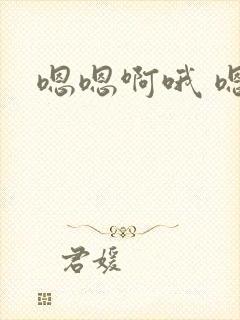 嗯嗯啊哦 嗯
君媛